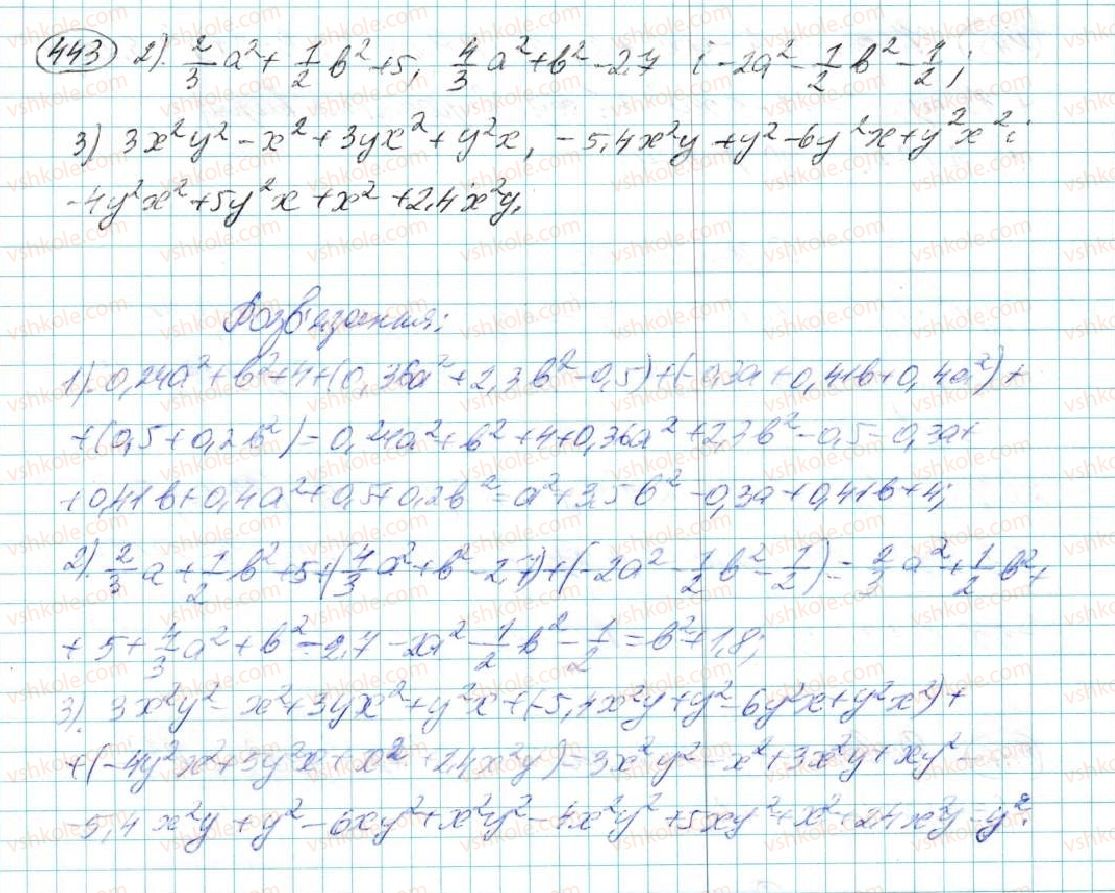 443 2). 2/3 a² + 1/2 b² + 5; 4/3 a² + b² - 2,7 і -2a² - 1/2 b² - 1/2;
3) 3x²y² - x² + 3yx² + y²x, -5,4x²y + y² - 6y²x + y²x² і
-4y²x² + 5y²x + x² + 2,4x²y.
Розв'язання:
1). 0,24a² + b² + 4 + (0,36a² + 2,3b² - 0,5) + (-0,3a + 0,41b + 0,4a²) +
+ (0,5 + 0,2b²) = 0,24a² + b² + 4 + 0,36a² + 2,3b² - 0,5 - 0,3a +
+ 0,41b + 0,4a² + 0,5 + 0,2b² = a² + 3,5b² - 0,3a + 0,41b + 4;
2). 2/3 a + 1/2 b² + 5 + (4/3 a² + b² - 2,7) + (-2a² - 1/2 b² - 1/2) = 2/3 a² + 1/2 b² +
+ 5 + 4/3 a² + b² - 2,7 - 2a² - 1/2 b² - 1/2 = b² + 1,8;
3). 3x²y² - x² + 3yx² + y²x + (-5,4x²y + y² - 6y²x + y²x²) +
+ (-4y²x² + 5y²x + x² + 2,4x²y) = 3x²y² - x² + 3x²y + xy² -
- 5,4x²y + y² - 6xy² + x²y² - 4x²y² + 5xy² + x² + 2,4x²y = y².